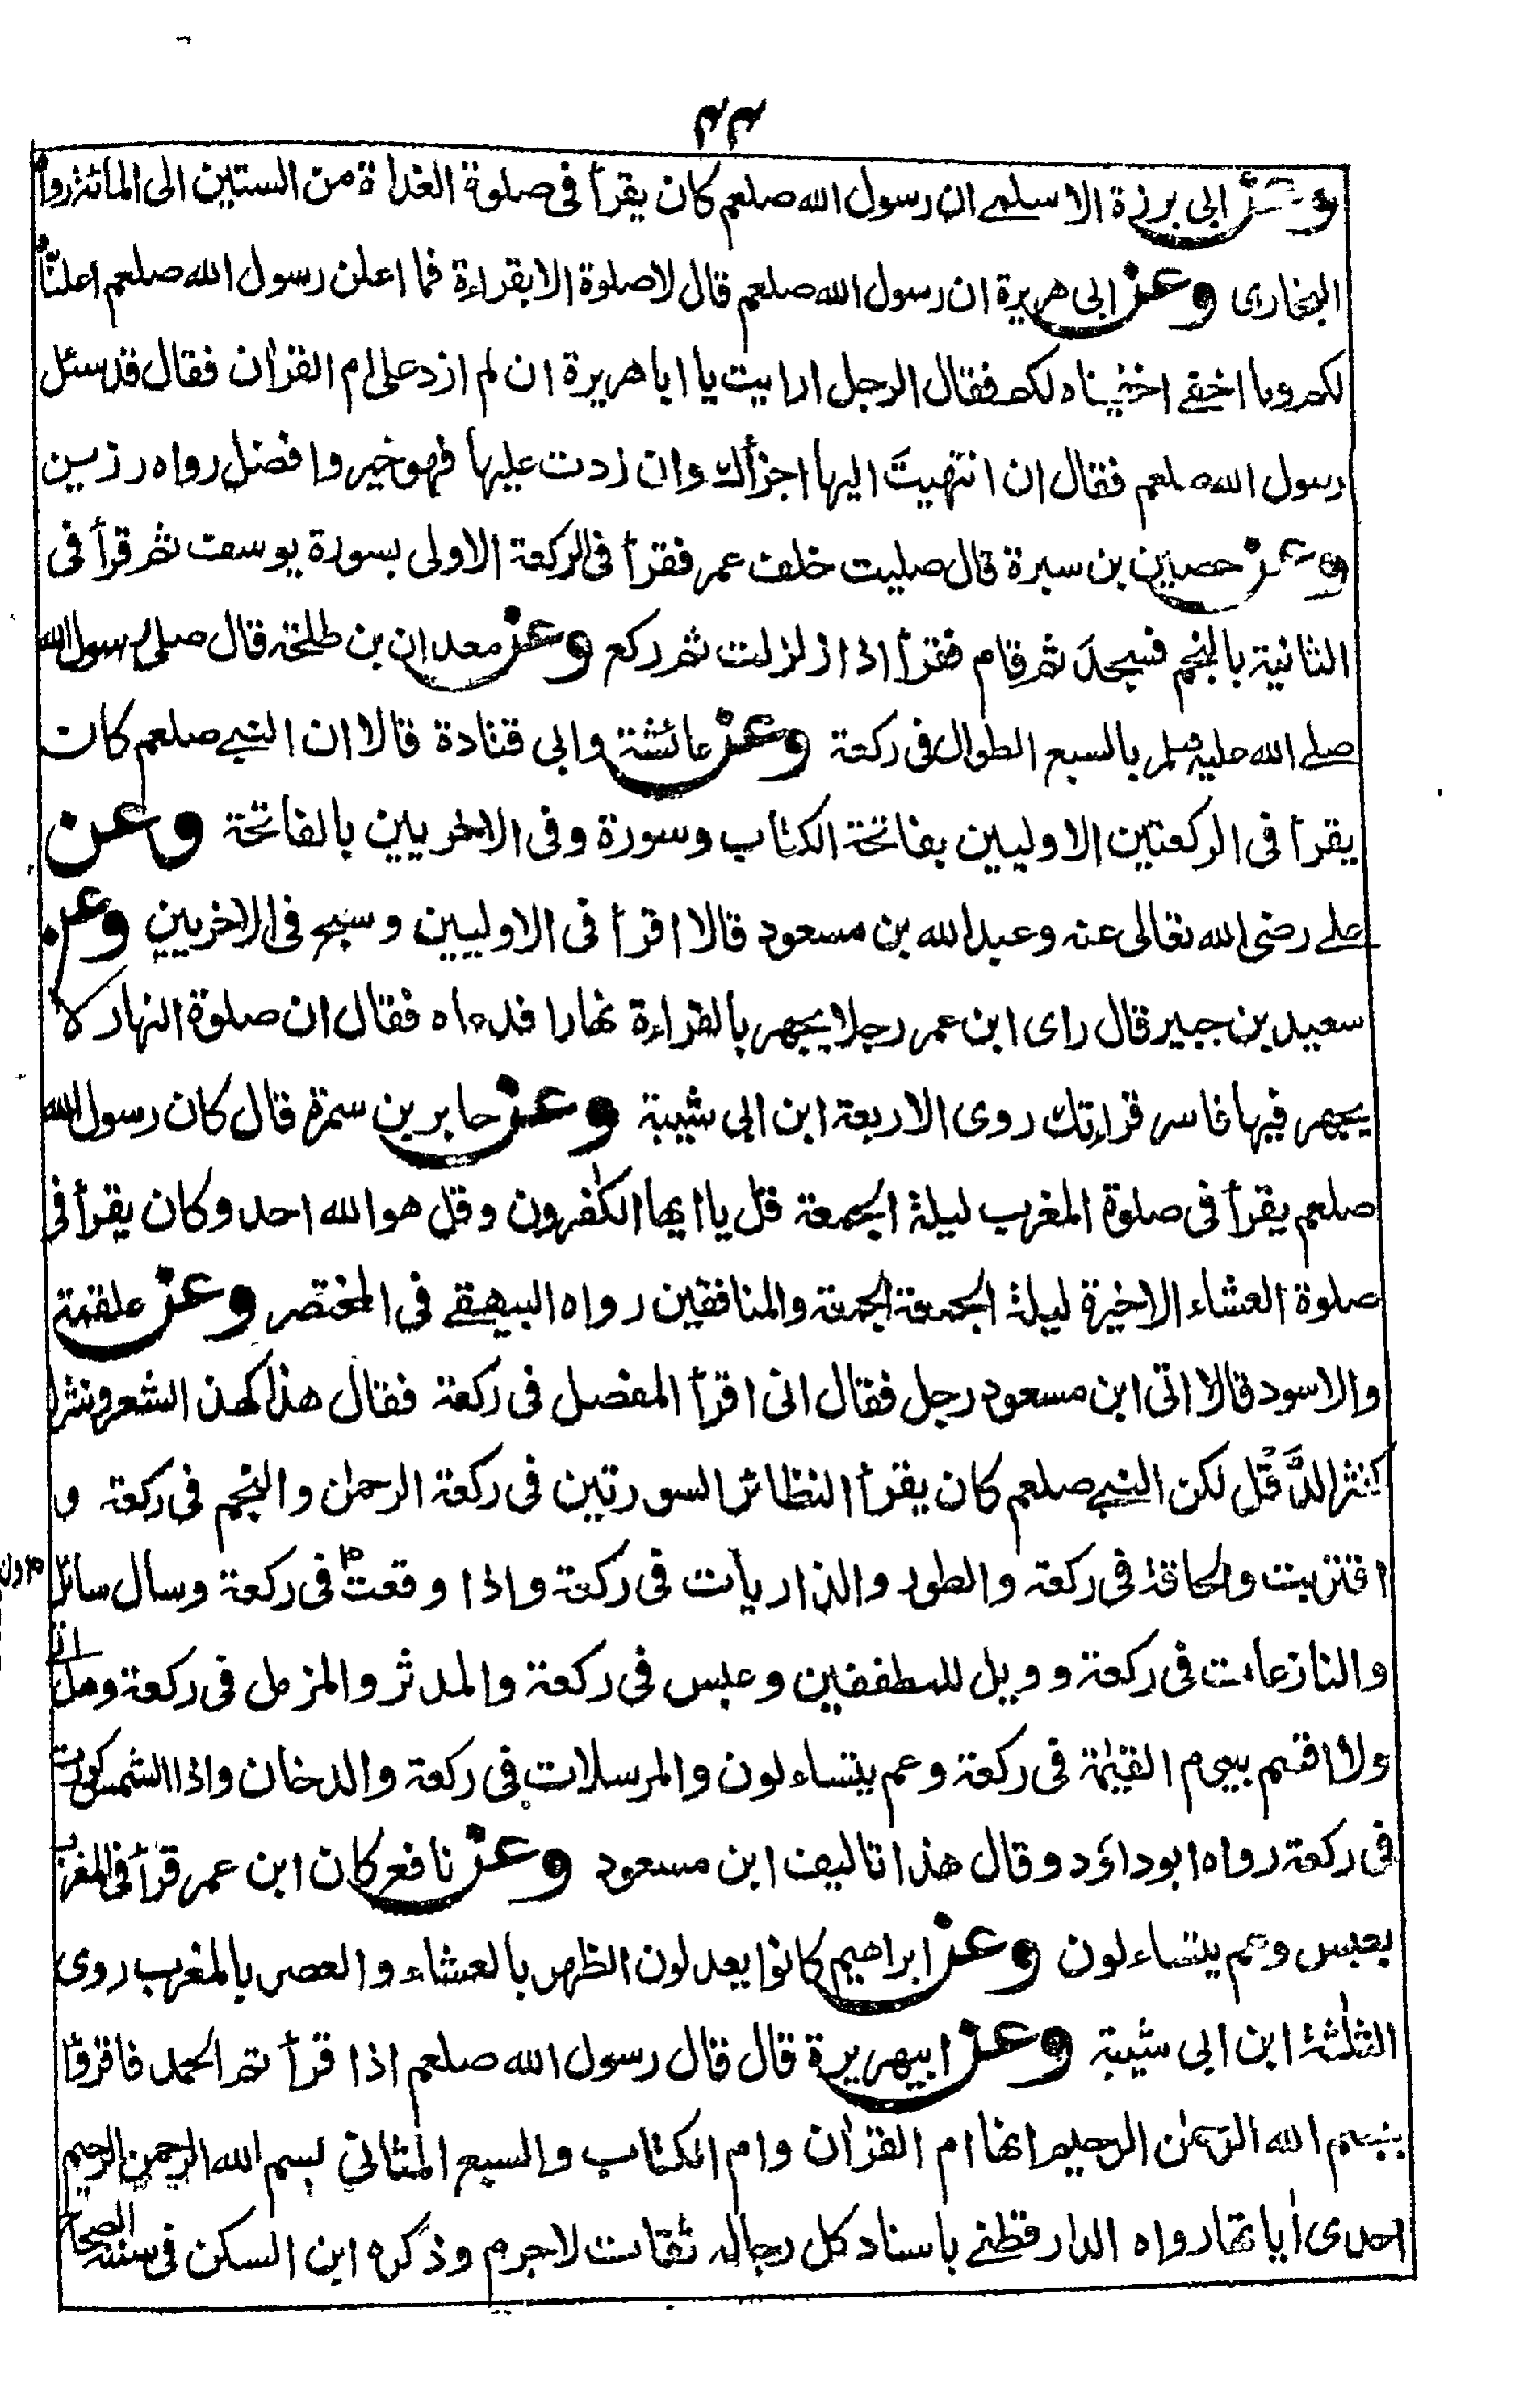 ۴۴
وعن ابی برزة الاسلمے ان رسول الله صلعم کان یقرأ فی صلوة الغداة من الستین الی المائة رواه
البخاری وعن ابی هریرة ان رسول الله صلعم قال لا صلوة الا بقراءة فما اعلن رسول الله صلعم اعلناه
لکم وما اخفے اخفیناه لکم فقال الرجل ارایت یا ابا هریرة ان لم ازد علی ام القرآن فقال قد سئل
رسول الله صلعم فقال ان انتهیتَ الیها اجزأك وان زدت علیها فهو خیر وافضل رواه رزین
وعن حصین بن سبرة قال صلیت خلف عمر فقرأ فی الرکعة الاولی بسورة یوسف ثم قرأ فی
الثانیة بالنجم فسجدَ ثم قام فقرأ اذا زلزلت ثم رکع وعن معدان بن طلحة قال صلی رسول الله
صلے الله علیه وسلم بالسبع الطوال فی رکعة وعن عائشة وابی قتادة قالا ان النبے صلعم کان
یقرأ فی الرکعتین الاولیین بفاتحة الکتاب وسورة وفی الاخریین بالفاتحة وعن
علے رضی الله تعالی عنه وعبد الله بن مسعود قالا اقرأ فی الاولیین وسبح فی الاخریین وعن
سعید بن جبیر قال رای ابن عمر رجلا یجهر بالقراءة نهارا فدعاه فقال ان صلوة النهار لا
یجهر فیها فاسر قراءتك روی الاربعة ابن ابی شیبة وعن جابر بن سمرة قال کان رسول الله
صلعم یقرأ فی صلوة المغرب لیلة الجمعة قل یا ایها الکٰفرون وقل هو الله احد وکان یقرأ فی
صلوة العشاء الاخیرة لیلة الجمعة الجمعة والمنافقین رواه البیهقے فی المختصر وعن علقمة
والاسود قالا اتی ابن مسعود رجل فقال انی اقرأ المفصل فی رکعة فقال هذا کهذ الشعر ونثرا
کنثر الدَّقَل لکن النبے صلعم کان یقرأ النظائر السورتین فی رکعة الرحمٰن والنجم فی رکعة و
اقتربت والحاقة فی رکعة والطور والذاریات فی رکعة واذا وقعت فی رکعة وسال سائل
والنازعات فی رکعة وویل للمطففین وعبس فی رکعة والمدثر والمزمل فی رکعة وهل اتی
ولا اقسم بیوم القیٰمة فی رکعة وعم یتساءلون والمرسلات فی رکعة والدخان واذا الشمس کورت
فی رکعة رواه ابو داؤد وقال هذا تالیف ابن مسعود وعن نافع کان ابن عمر قرأ فی المغرب
بعبس وعم یتساءلون وعن ابراهیم کانوا یعدلون الظهر بالعشاء والعصر بالمغرب روی
الثلٰثة ابن ابی شیبة وعن ابیهریرة قال قال رسول الله صلعم اذا قرأ تم الحمد فاقرؤا
ببسم الله الرحمٰن الرحیم انها ام القرآن وام الکتاب والسبع المثانی بسم الله الرحمن الرحیم
احدی اٰیاتها رواه الدارقطنے باسناد کل رجاله ثقات لاجرم وذکره ابن السکن فی سننه الصحاح